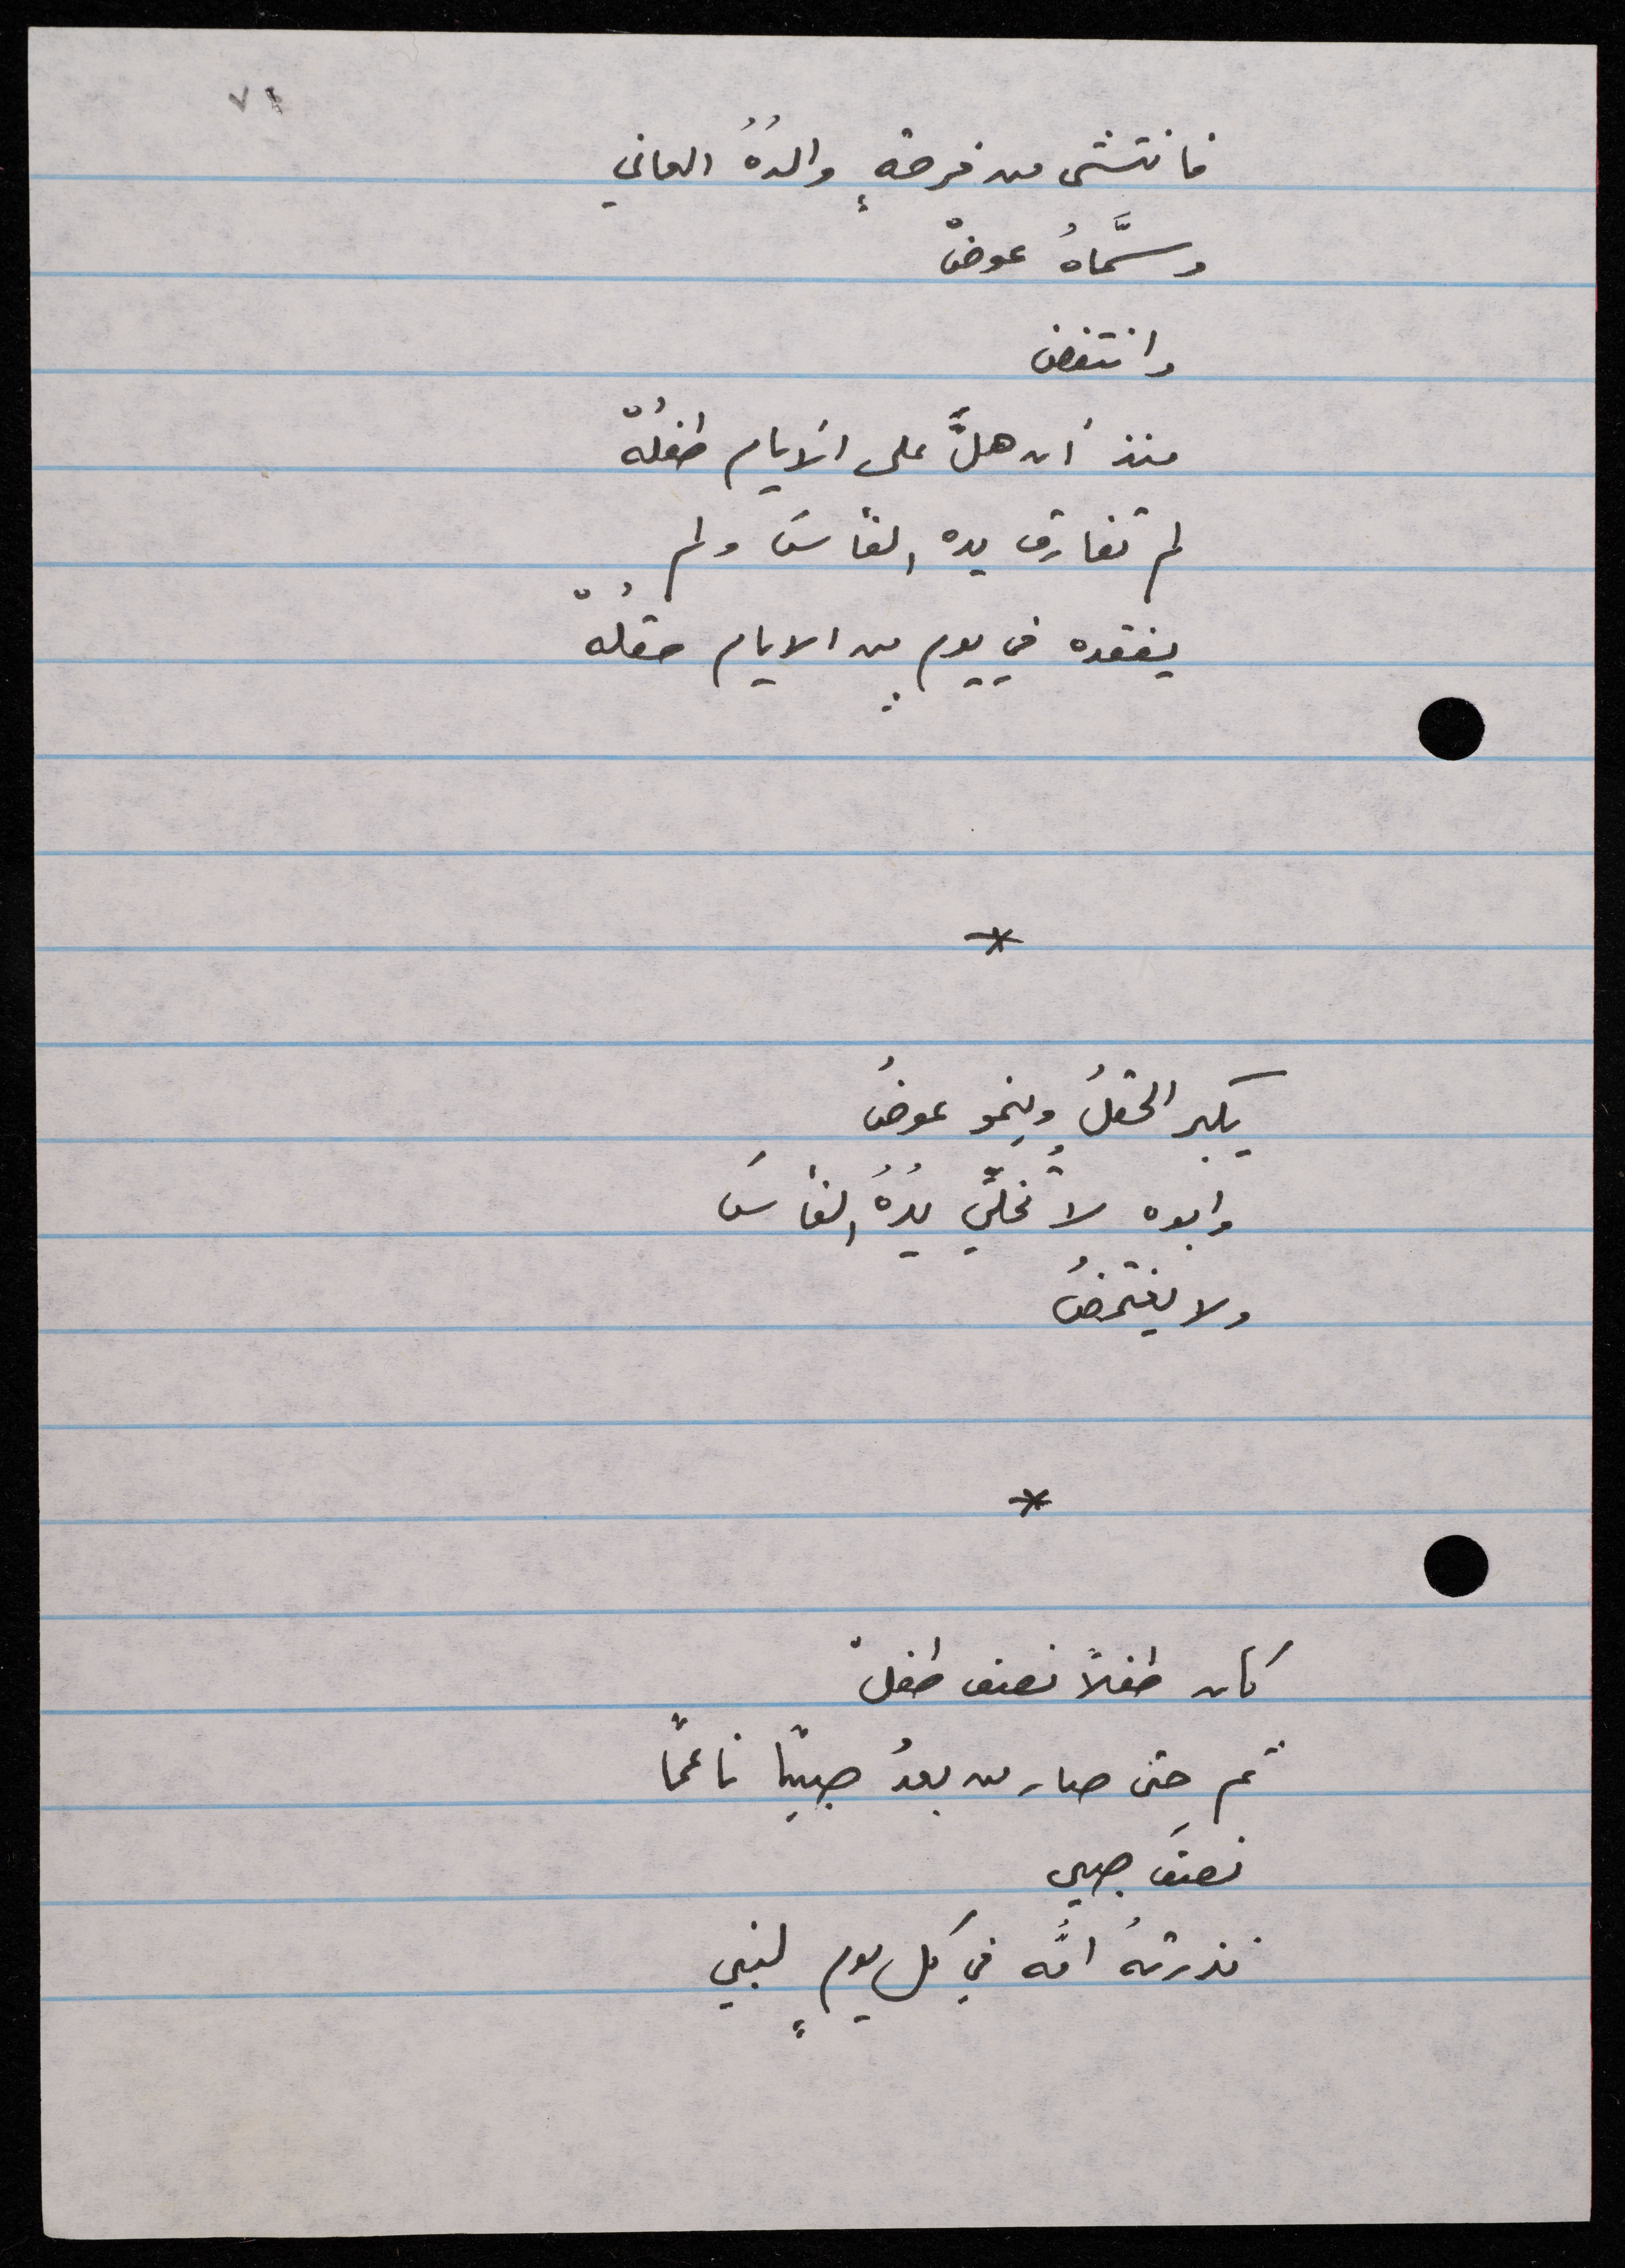 ٧١
فانتشى من فرحةٍ والدُهُ العاني
وسمَّاهُ عوضْ
وانتفض
منذ أن هلَّ على الأيام طفلُهْ
لم تفارق يده الفأسَ ولم
يفقده في يومٍ من الايام حقلُهْ
*
يكبر الحقلُ وينمو عوضُ
وابوه لا تُخلّي يدُهُ الفأسَ
ولا يغتمضُ
*
كان طفلاً نصف طفلْ
ثم حتى صار من بعدُ صبيًا ناعمًا
نصفَ صبي
نذرتهُ امُّه في كل يومٍ لنبي